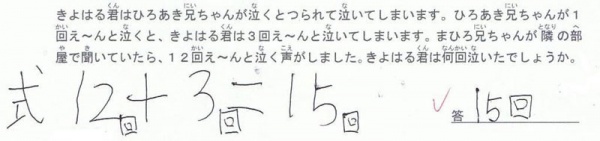 きよはる君はひろあき兄ちゃんが泣くとつられて泣いてしまいます。ひろあき兄ちゃんが１
回え～んと泣くと、きよはる君は３回え～んと泣いてしまいます。まひろ兄ちゃんが隣の部
屋で聞いていたら、１２回え～んと泣く声がしました。きよはる君は何回泣いたでしょうか。
式 12回+3回=15回
答 15回